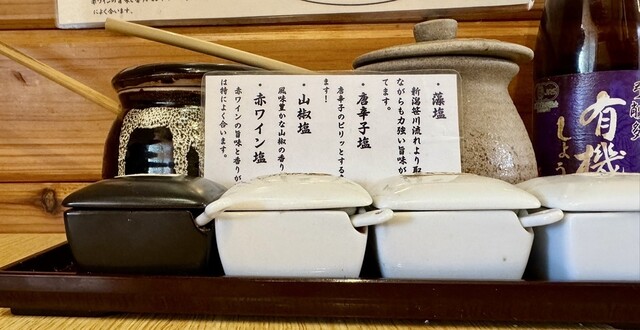 によく合います。
・藻塩
新潟笹川流れより取
ながらも力強い旨味が
てます。
・唐辛子塩
唐辛子のピリッとする
ます!
・山椒塩
風味豊かな山椒の香り
・赤ワイン塩
赤ワインの旨味と香りが
は特によく合います。
有機
しょう